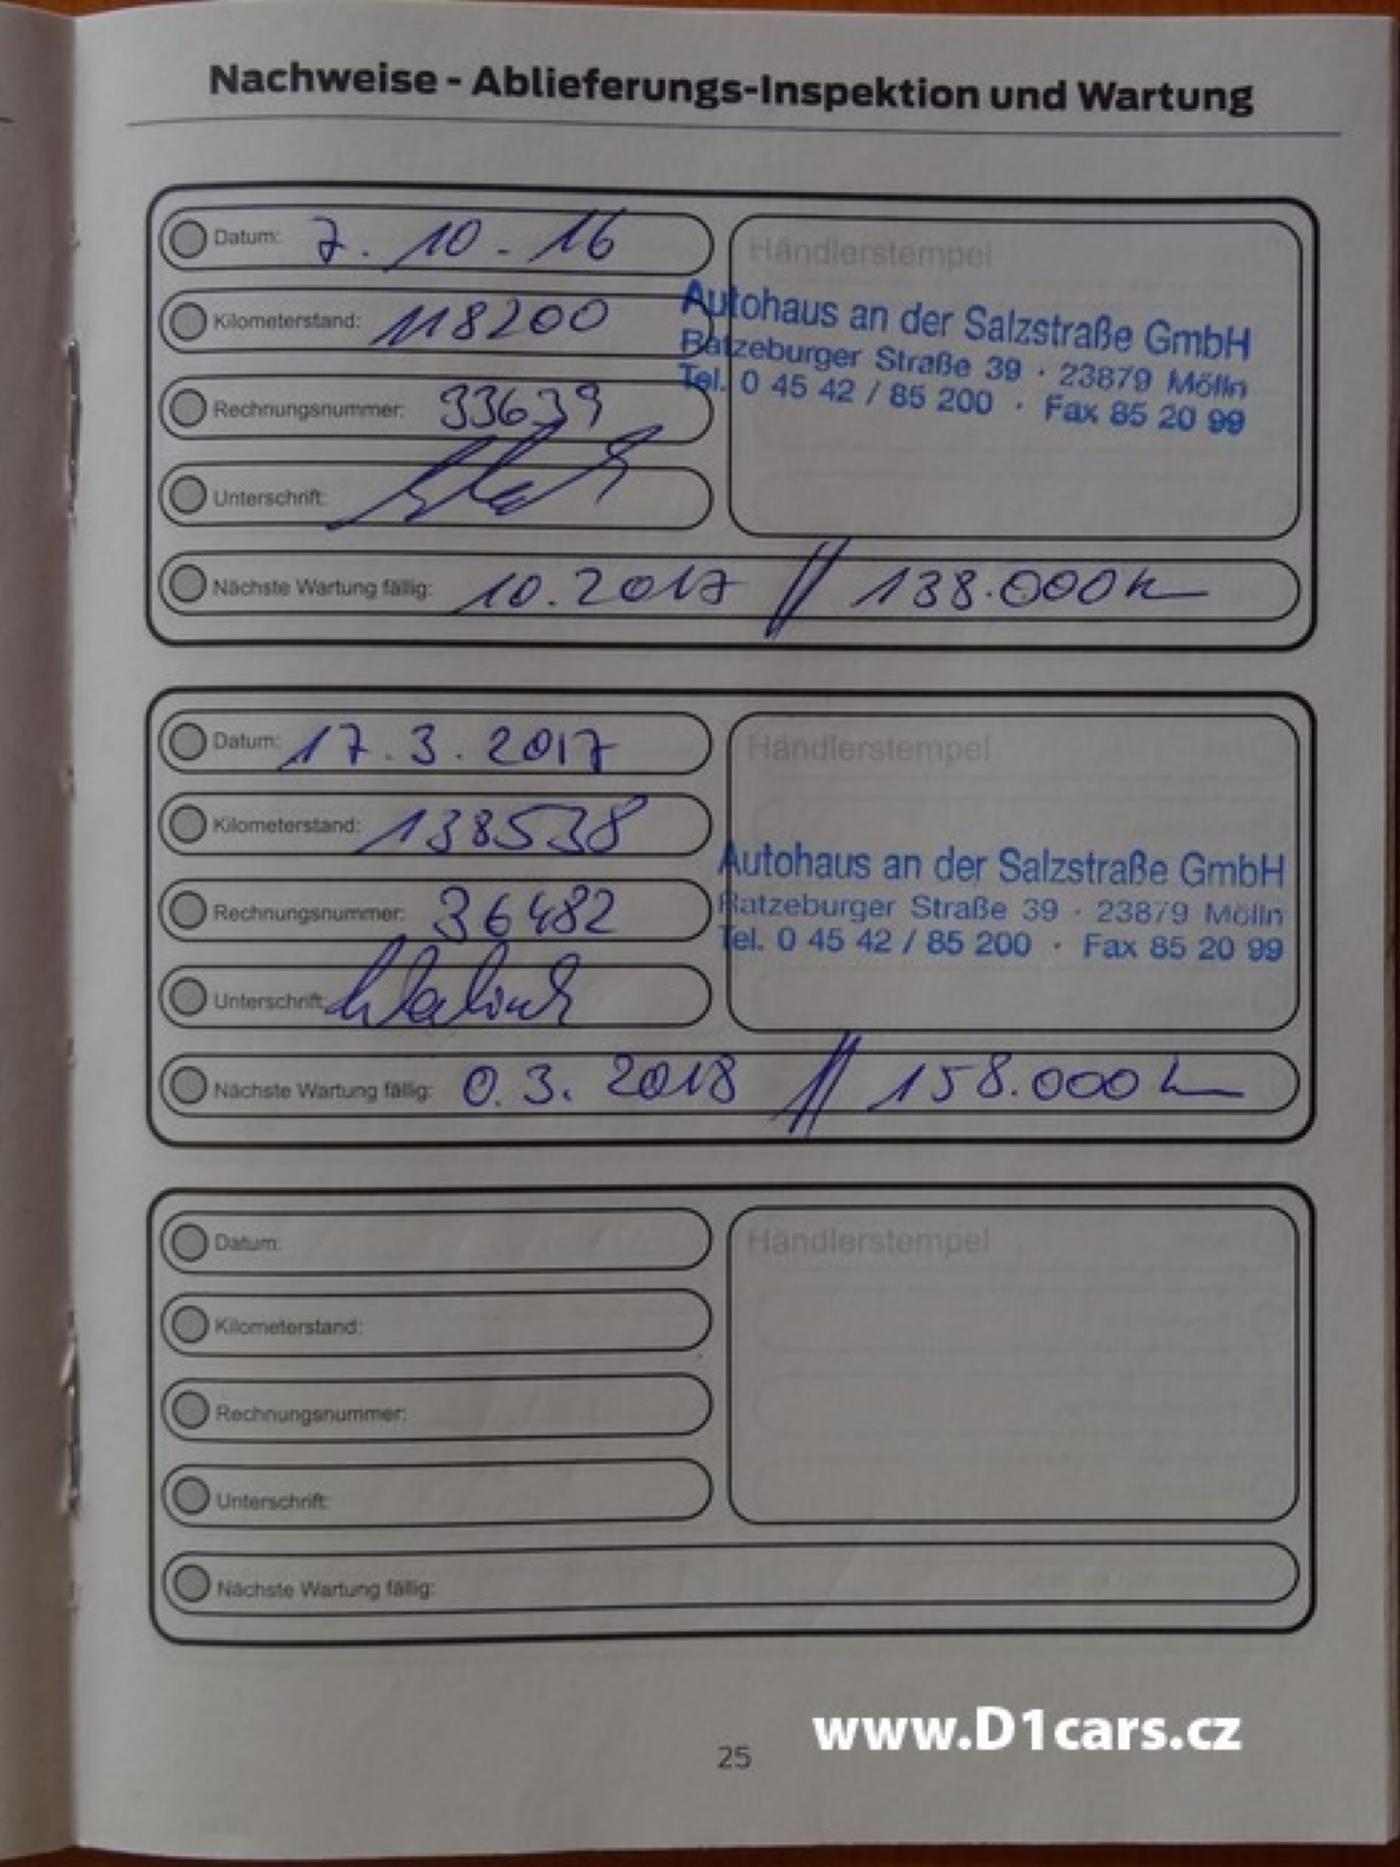 Nachweise - Ablieferungs-Inspektion und Wartung
Datum: 7. 10 - 16
Kilometerstand: 118200
Rechnungsnummer: 33639
Unterschrift:
Händlerstempel
Autohaus an der Salzstraße GmbH
Ratzeburger Straße 39 · 23879 Mölln
Tel. 0 45 42 / 85 200 · Fax 85 20 99
Nächste Wartung fällig: 10.2017 // 138.000 k
Datum: 17.3.2017
Kilometerstand: 138538
Rechnungsnummer: 36482
Unterschrift:
Händlerstempel
Autohaus an der Salzstraße GmbH
Ratzeburger Straße 39 · 23879 Mölln
Tel. 0 45 42 / 85 200 · Fax 85 20 99
Nächste Wartung fällig: 0.3. 2018 // 158.000 k
Datum:
Kilometerstand:
Rechnungsnummer:
Unterschrift:
Händlerstempel
Nächste Wartung fällig:
www.D1cars.cz
25